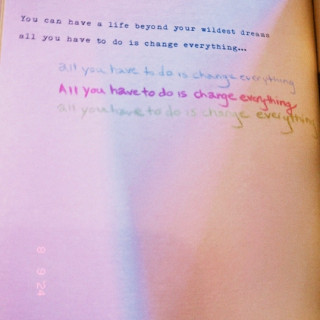 You can have a life beyond your wildest dreams
all you have to do is change everything...
all you have to do is change everything
All you have to do is change everything
all you have to do is change everything
8 9 24